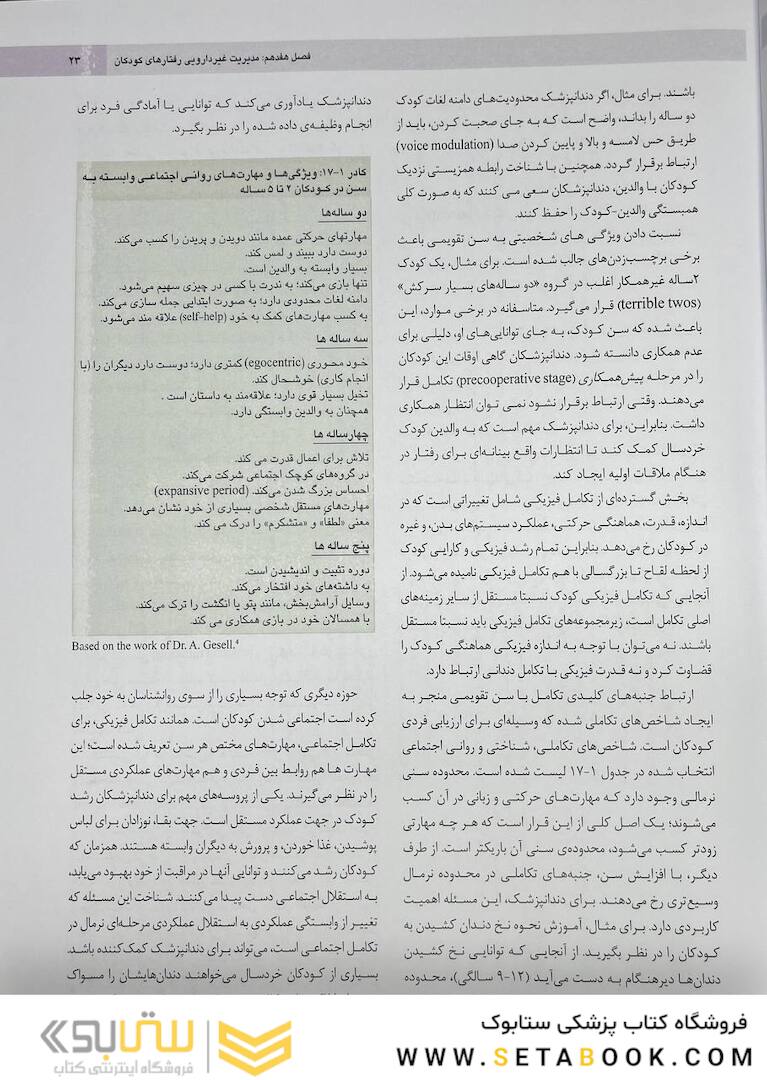 فصل هفدهم: مدیریت غیردارویی رفتارهای کودکان ۲۳
باشند. برای مثال، اگر دندانپزشک محدودیت‌های دامنه لغات کودک
دو ساله را بداند، واضح است که به جای صحبت کردن، باید از
طریق حس لامسه و بالا و پایین کردن صدا (voice modulation)
ارتباط برقرار گردد. همچنین با شناخت رابطه همزیستی نزدیک
کودکان با والدین، دندانپزشکان سعی می کنند که به صورت کلی
همبستگی والدین-کودک را حفظ کنند.
نسبت دادن ویژگی های شخصیتی به سن تقویمی باعث
برخی برچسب‌زدن‌های جالب شده است. برای مثال، یک کودک
۲ساله غیرهمکار اغلب در گروه «دو ساله‌های بسیار سرکش»
(terrible twos) قرار می‌گیرد. متاسفانه در برخی موارد، این
باعث شده که سن کودک، به جای توانایی‌های او، دلیلی برای
عدم همکاری دانسته شود. دندانپزشکان گاهی اوقات این کودکان
را در مرحله پیش‌همکاری (precooperative stage) تکامل قرار
می‌دهند. وقتی ارتباط برقرار نشود نمی توان انتظار همکاری
داشت. بنابراین، برای دندانپزشک مهم است که به والدین کودک
خردسال کمک کند تا انتظارات واقع بینانه‌ای برای رفتار در
هنگام ملاقات اولیه ایجاد کند.
بخش گسترده‌ای از تکامل فیزیکی شامل تغییراتی است که در
اندازه، قدرت، هماهنگی حرکتی، عملکرد سیستم‌های بدن، و غیره
در کودکان رخ می‌دهد. بنابراین تمام رشد فیزیکی و کارایی کودک
از لحظه لقاح تا بزرگسالی با هم تکامل فیزیکی نامیده می‌شود. از
آنجایی که تکامل فیزیکی کودک نسبتا مستقل از سایر زمینه‌های
اصلی تکامل است، زیرمجموعه‌های تکامل فیزیکی باید نسبتا مستقل
باشند. نه می‌توان با توجه به اندازه فیزیکی هماهنگی کودک را
قضاوت کرد و نه قدرت فیزیکی با تکامل دندانی ارتباط دارد.
ارتباط جنبه‌های کلیدی تکامل با سن تقویمی منجر به
ایجاد شاخص‌های تکاملی شده که وسیله‌ای برای ارزیابی فردی
کودکان است. شاخص‌های تکاملی، شناختی و روانی اجتماعی
انتخاب شده در جدول ۱-۱۷ لیست شده است. محدوده سنی
نرمالی وجود دارد که مهارت‌های حرکتی و زبانی در آن کسب
می‌شوند؛ یک اصل کلی از این قرار است که هر چه مهارتی
زودتر کسب می‌شود، محدوده‌ی سنی آن باریکتر است. از طرف
دیگر، با افزایش سن، جنبه‌های تکاملی در محدوده نرمال
وسیع‌تری رخ می‌دهند. برای دندانپزشک، این مسئله اهمیت
کاربردی دارد. برای مثال، آموزش نحوه نخ دندان کشیدن به
کودکان را در نظر بگیرید. از آنجایی که توانایی نخ کشیدن
دندان‌ها دیرهنگام به دست می‌آید (۱۲-۹ سالگی)، محدوده
دندانپزشک یادآوری می‌کند که توانایی یا آمادگی فرد برای
انجام وظیفه‌ی داده شده را در نظر بگیرد.
کادر ۱-۱۷: ویژگی‌ها و مهارت‌های روانی اجتماعی وابسته به
سن در کودکان ۲ تا ۵ ساله
دو ساله‌ها
مهارتهای حرکتی عمده مانند دویدن و پریدن را کسب می‌کند.
دوست دارد ببیند و لمس کند.
بسیار وابسته به والدین است.
تنها بازی می‌کند؛ به ندرت با کسی در چیزی سهیم می‌شود.
دامنه لغات محدودی دارد؛ به صورت ابتدایی جمله سازی می‌کند.
به کسب مهارت‌های کمک به خود (self-help) علاقه مند می‌شود.
سه ساله ها
خود محوری (egocentric) کمتری دارد؛ دوست دارد دیگران را (با
انجام کاری) خوشحال کند.
تخیل بسیار قوی دارد؛ علاقه‌مند به داستان است .
همچنان به والدین وابستگی دارد.
چهارساله ها
تلاش برای اعمال قدرت می کند.
در گروه‌های کوچک اجتماعی شرکت می‌کند.
احساس بزرگ شدن می‌کند. (expansive period)
مهارت‌های مستقل شخصی بسیاری از خود نشان می‌دهد.
معنی «لطفا» و «متشکرم» را درک می کند.
پنج ساله ها
دوره تثبیت و اندیشیدن است.
به داشته‌های خود افتخار می‌کند.
وسایل آرامش‌بخش، مانند پتو یا انگشت را ترک می‌کند.
با همسالان خود در بازی همکاری می کند.
Based on the work of Dr. A. Gesell.⁴
حوزه دیگری که توجه بسیاری را از سوی روانشناسان به خود جلب
کرده است اجتماعی شدن کودکان است. همانند تکامل فیزیکی، برای
تکامل اجتماعی، مهارت‌های مختص هر سن تعریف شده است؛ این
مهارت ها هم روابط بین فردی و هم مهارت‌های عملکردی مستقل
را در نظر می‌گیرند. یکی از پروسه‌های مهم برای دندانپزشکان رشد
کودک در جهت عملکرد مستقل است. جهت بقا، نوزادان برای لباس
پوشیدن، غذا خوردن، و پرورش به دیگران وابسته هستند. همزمان که
کودکان رشد می‌کنند و توانایی آنها در مراقبت از خود بهبود می‌یابد،
به استقلال اجتماعی دست پیدا می‌کنند. شناخت این مسئله که
تغییر از وابستگی عملکردی به استقلال عملکردی مرحله‌ای نرمال در
تکامل اجتماعی است، می‌تواند برای دندانپزشک کمک‌کننده باشد.
بسیاری از کودکان خردسال می‌خواهند دندان‌هایشان را مسواک
فروشگاه کتاب پزشکی ستابوک
WWW.SETABOOK.COM
ستابوک
فروشگاه اینترنتی کتاب